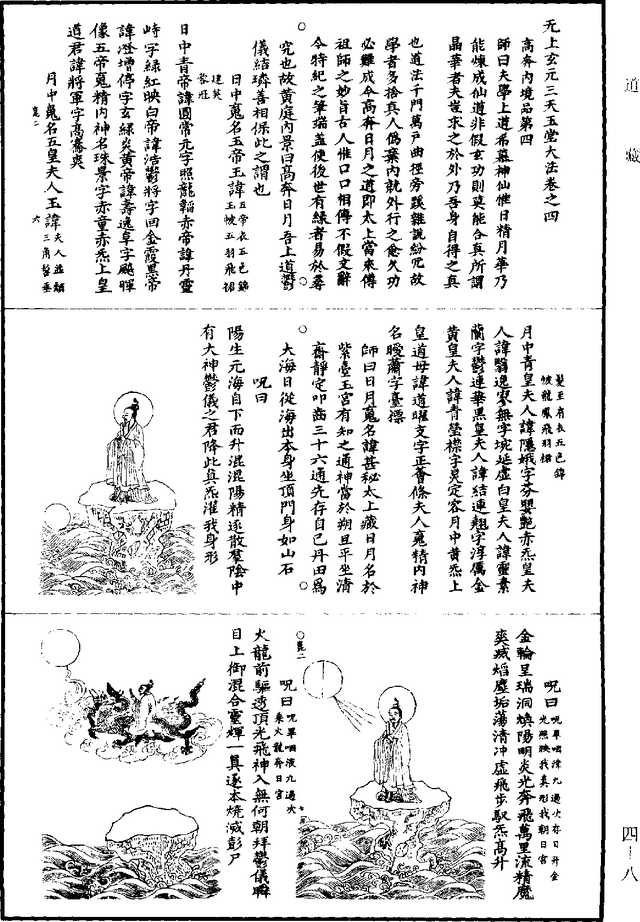 道藏
四—八
无上玄元三天玉堂大法卷之四
高奔內境品第四
師曰夫學上道希慕神仙惟日精月華乃
能煉成仙道非假玄功則莫能合真所謂
晶華者夫豈求之於外乃吾身自得之真
也道法千門萬戶曲徑旁蹊雜說紛冗故
學者多捨真人偽棄內就外行之愈久功
必難成今高奔日月之道即太上當來傳
祖師之妙旨古人惟口口相傳不假文辭
令特紀之筆端蓋使後世有緣者易於尋
究也故黃庭內景曰高奔日月吾上道鬱
儀結璘善相保此之謂也
日中五帝諱
日中青帝諱圓常无字照龍韜赤帝諱丹靈
峙字綠虹映白帝諱浩鬱將字回金霞黑帝
諱澄增停字玄綠炎黃帝諱壽逸阜字飇暉
像五帝䰟精內神名珠景字赤童赤炁上皇
道君諱將軍字高騫爽
月中䰟名五皇夫人玉諱
髮至肩衣五色錦
帔龍鳳飛羽裙
月中青皇夫人諱隱娥字芬豔嬰赤炁皇夫
人諱翳逸寥無字婉延虛白皇夫人諱靈素
蘭字鬱連華黑皇夫人諱結連翹字淳厲金
黃皇夫人諱青瑩襟字炅定容月中黃炁上
皇道母諱道曜支字正薈條夫人䰟精內神
名曖蕭字臺摽
師曰日月䰟名諱甚秘太上藏日月名於
紫臺玉宮有知之通神當於朔旦平坐清
齋靜定叩齒三十六通先存自己丹田為
大海日從海出本身坐頂門身如山石
呪曰
陽生元海自下而升混混陽精逐散羣陰中
有大神鬱儀之君降此真炁濯我身形
呪曰 呪畢咽津九過次存日月金
光照映我真形我朝日宮
金輪呈瑞洞煥陽明炎光奔飛萬里流精魔
爽滅焰塵垢蕩清冲虛飛步馭炁高升
呪曰 呪畢咽液九過次
乘火龍奔日宮
火龍前驅透頂光飛神入無何朝拜鬱儀瞬
目上御混合重輝一真逐本燒滅彭尸